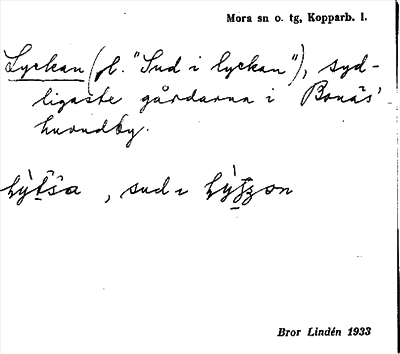 Mora sn o. tg, Kopparb. l.
Lyckan (pl. "Sud i lyckan"), syd-
ligaste gårdarna i Bonäs'
huvudby.
, sud i
Bror Lindén 1933